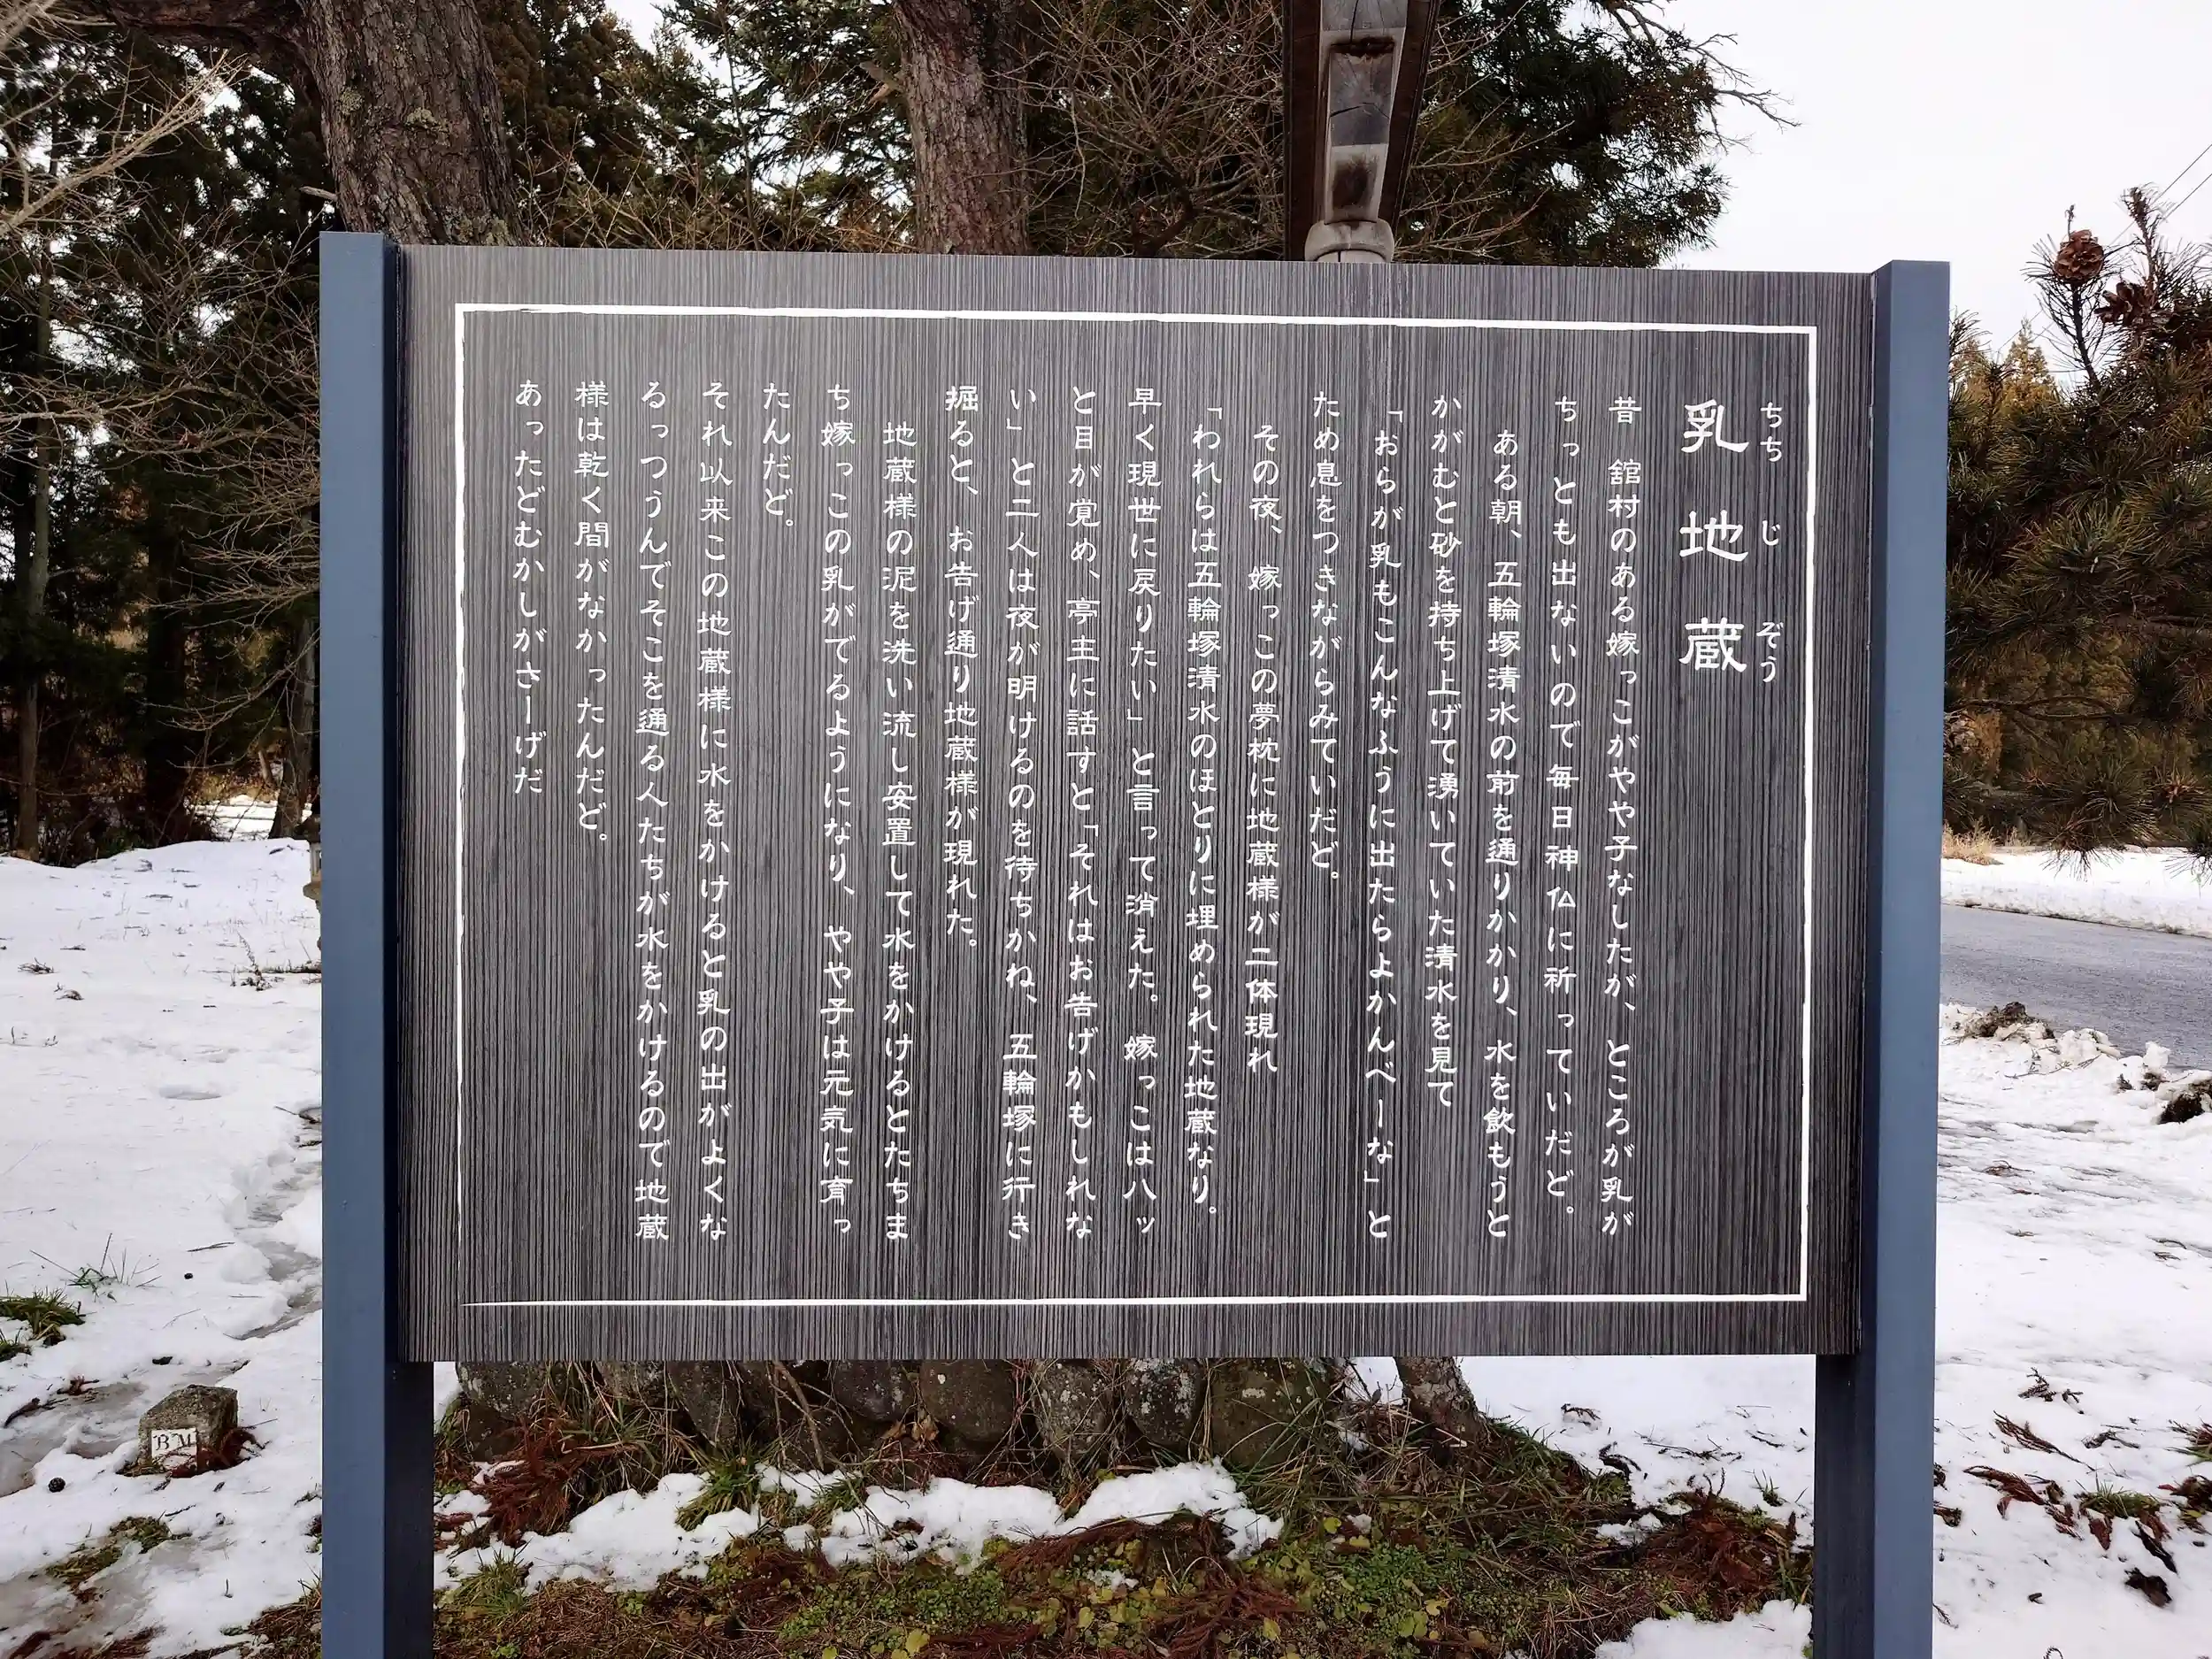 乳地蔵
ちち じ ぞう
昔 舘村のある嫁っこがやや子なしたが、ところが乳が
ちっとも出ないので毎日神仏に祈っていだど。
ある朝、五輪塚清水の前を通りかかり、水を飲もうと
かがむと砂を持ち上げて湧いていた清水を見て
「おらが乳もこんなふうに出たらよかんべーな」と
ため息をつきながらみていだど。
その夜、嫁っこの夢枕に地蔵様が二体現れ
「われらは五輪塚清水のほとりに埋められた地蔵なり。
早く現世に戻りたい」と言って消えた。嫁っこはハッ
と目が覚め、亭主に話すと「それはお告げかもしれな
い」と二人は夜が明けるのを待ちかね、五輪塚に行き
掘ると、お告げ通り地蔵様が現れた。
地蔵様の泥を洗い流し安置して水をかけるとたちま
ち嫁っこの乳がでるようになり、やや子は元気に育っ
たんだど。
それ以来この地蔵様に水をかけると乳の出がよくな
るっつうんでそこを通る人たちが水をかけるので地蔵
様は乾く間がなかったんだど。
あったどむかしがさーげだ
BM